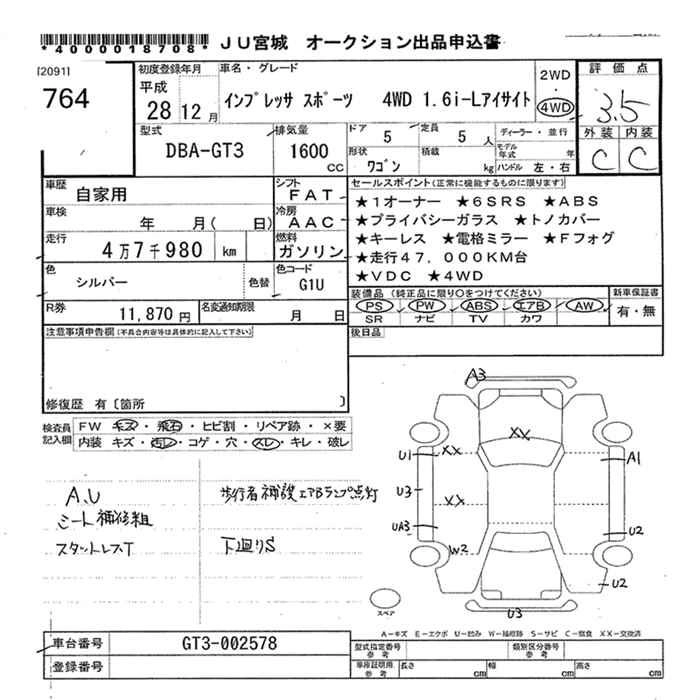 *4000018708* JU宮城 オークション出品申込書
[2091]
764
初度登録年月
平成
28 12 月
車名・グレード
インプレッサ スポーツ 4WD 1.6i-Lアイサイト
2WD
4WD
評価点
3.5
外装 内装
C C
型式
DBA-GT3
排気量
1600
CC
ドア 5
定員 5 人
ディーラー・並行
形状 ワゴン
積載 kg
モデル年式 年
ハンドル 左・右
車歴
自家用
シフト
FAT
車検
年 月( 日)
冷房
AAC
走行
4万7千980 km
燃料
ガソリン
色
シルバー
色替
色コード
G1U
R券
11,870 円
名変通知期限
月 日
セールスポイント(正常に機能するものに限ります)
★1オーナー ★6SRS ★ABS
★プライバシーガラス ★トノカバー
★キーレス ★電格ミラー ★Fフォグ
★走行47,000KM台
★VDC ★4WD
装備品(純正品に限り○をつけてください)
新車保証書
PS PW ABS エアB AW
SR ナビ TV カワ
有・無
注意事項申告欄(不具合内容等は具体的に記入して下さい)
後日品
修復歴 有〔箇所 〕
検査員記入欄
FW キズ・飛石・ヒビ割・リペア跡・×要
内装 キズ・汚レ・コゲ・穴・スレ・キレ・破レ
A、U
シート補修粗
スタットレスT
歩行者補護エアBランプ点灯
下廻りS
A3
XX
U1
XX
A1
U3
XX
UA3
U2
W2
U2
U3
スペア
A―キズ E―エクボ U―凹み W―補修跡 S―サビ C―腐食 XX―交換済
車台番号
GT3-002578
登録番号
型式指定番号参考
類別区分番号参考
車庫証明用参考
長さ cm
幅 cm
高さ cm